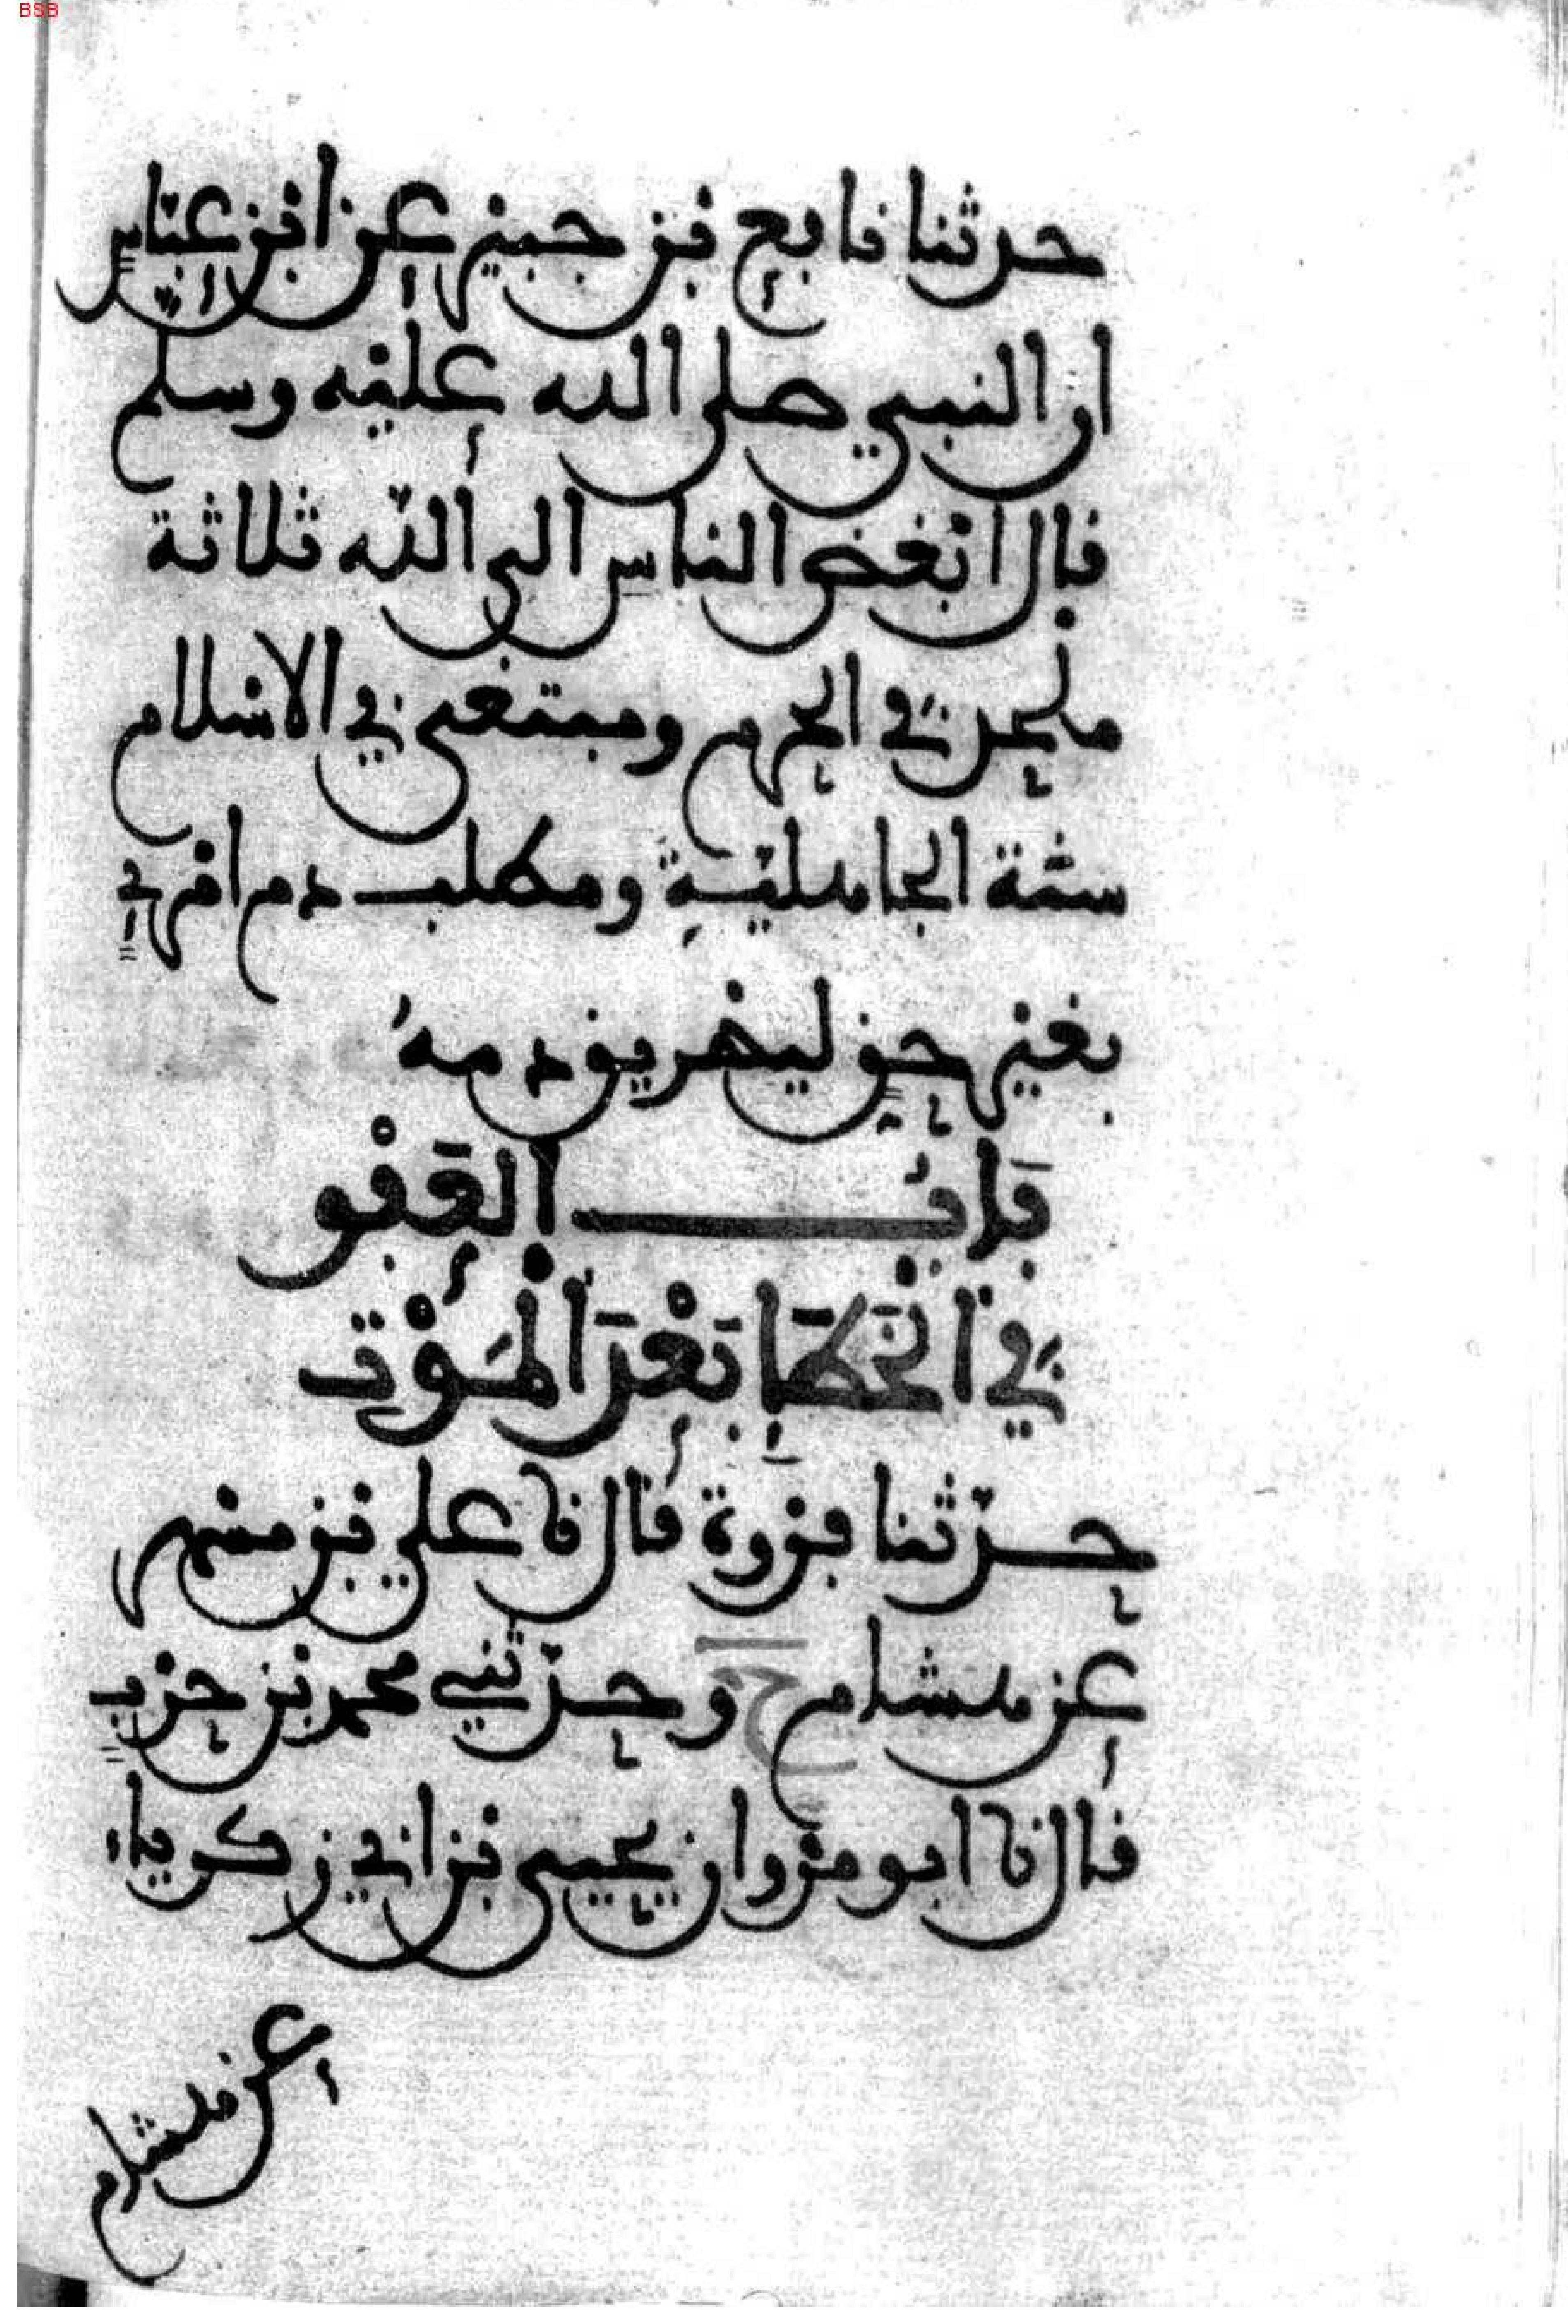 BSB
حدثنا نابع بن جبير عن ابن عباس
ان النبي صلى الله عليه وسلم
قال ابغض الناس الى الله ثلاثة
ملحد في الحرم ومبتغى في الاسلام
سنة الجاهلية ومطلب دم امرئ
بغير حق ليهريق دمه
باب العفو
في الخطإ بعد الموت
حدثنا فروة قال نا علي بن مسهر
عن هشام ح وحدثني محمد بن حرب
قال نا ابو مروان يحيى بن ابي زكرياء
عن هشام